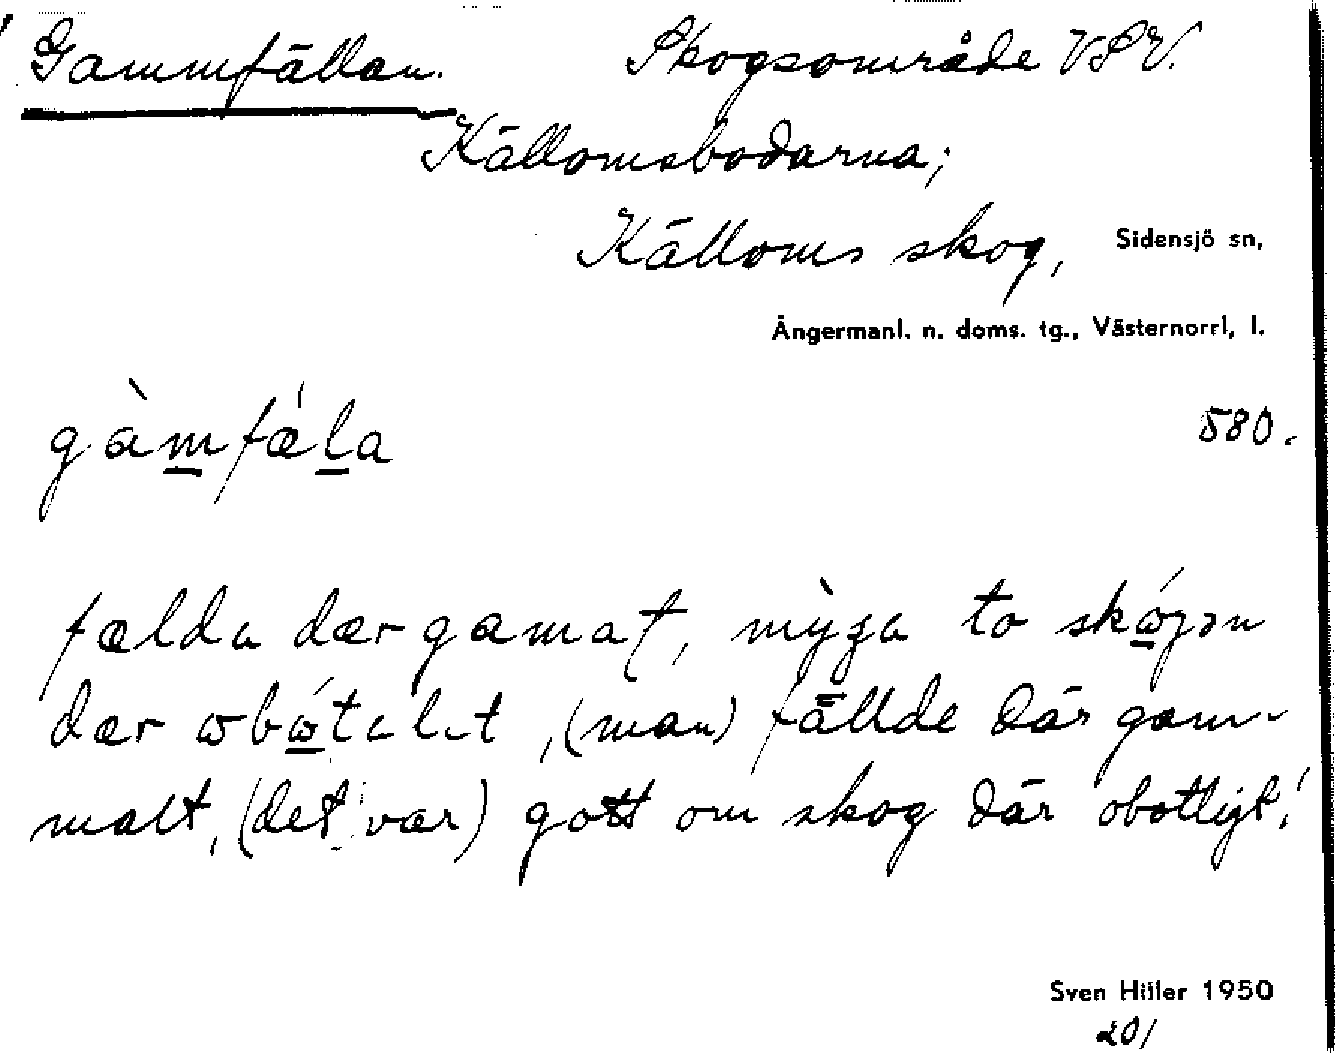 Gammfällan. Skogsområde VSV.
Källomsbodarna;
Källoms skog, Sidensjö sn,
Ångermanl. n. doms. tg., Västernorrl. l.
gàmfǽla 580.
fælda dær gamat, to
dær (man) fällde där gam-
malt, (det var) gott om skog där obotligt!
Sven Hiller 1950
20/